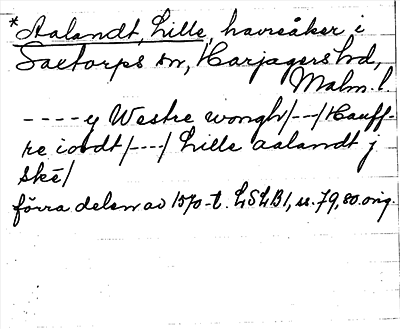 * Aalandt, Lille, havreåker i
Saxtorps sn, Harjagers hd,
Malm. l
- - - - y Westre wongh/---/Hauff-
re iordt/---/Lille aalandt j
Skē/
förra delen av 1570-t. LSLB1, s. 79, 80 orig.